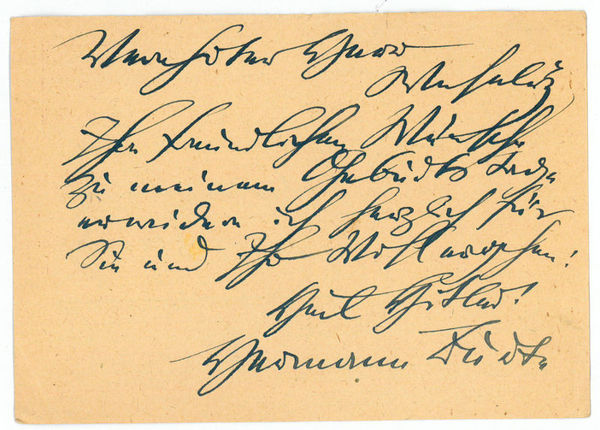 Verehrter Herr
Ihre freundlichen Wünsche
zu meinem Geburtstage
erwidere ich herzlich für
Sie und Ihr Wohlergehen!
Heil Hitler!
Hermann Burte